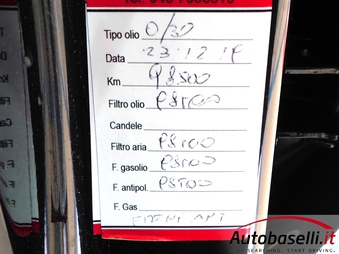 Tipo olio 0/30
Data 23.12.19
Km 98500
Filtro olio 98500
Candele
Filtro aria 98500
F. gasolio 98500
F. antipol. 98500
F. Gas
Autobaselli.it
SEARCHING. START DRIVING.